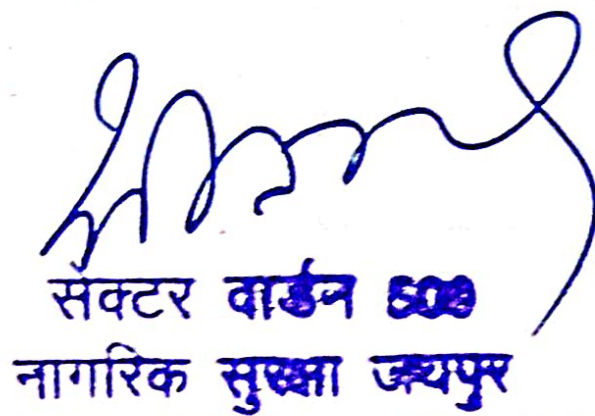 सेक्टर वार्डन
नागरिक सुरक्षा जयपुर